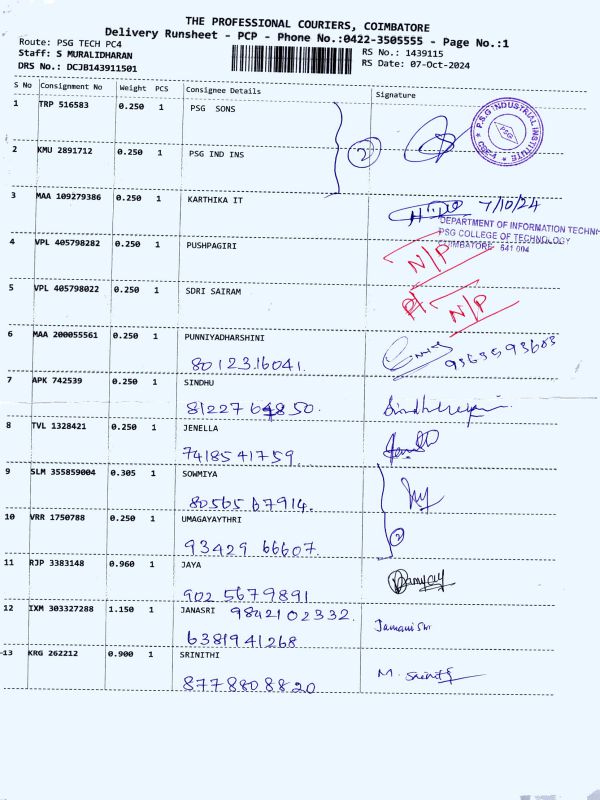 THE PROFESSIONAL COURIERS, COIMBATORE
Delivery Runsheet - PCP - Phone No.:0422-3505555 - Page No.:1
Route: PSG TECH PC4
RS No.: 1439115
Staff: S MURALIDHARAN
RS Date: 07-Oct-2024
DRS No.: DCJB143911501
S No Consignment No Weight PCS Consignee Details Signature
1 TRP 516583 0.250 1 PSG SONS
2
P.S.G INDUSTRIAL INSTITUTE
PSG
2 KMU 2891712 0.250 1 PSG IND INS
3 MAA 109279386 0.250 1 KARTHIKA IT
7/10/24
DEPARTMENT OF INFORMATION TECHN
PSG COLLEGE OF TECHNOLOGY
COIMBATORE 641 004
4 VPL 405798282 0.250 1 PUSHPAGIRI
N/P
5 VPL 405798022 0.250 1 SDRI SAIRAM
N/P
6 MAA 200055561 0.250 1 PUNNIYADHARSHINI
80123.16041.
9363593603
7 APK 742539 0.250 1 SINDHU
8 TVL 1328421 0.250 1 JENELLA
7418541759.
9 SLM 355859004 0.305 1 SOWMIYA
80565 67914.
10 VRR 1750788 0.250 1 UMAGAYAYTHRI
2
93429 66607.
11 RJP 3383148 0.960 1 JAYA
902 5679891
12 IXM 303327288 1.150 1 JANASRI 9842102332.
6381941268
13 KRG 262212 0.900 1 SRINITHI
M. Srinithi
8778808820